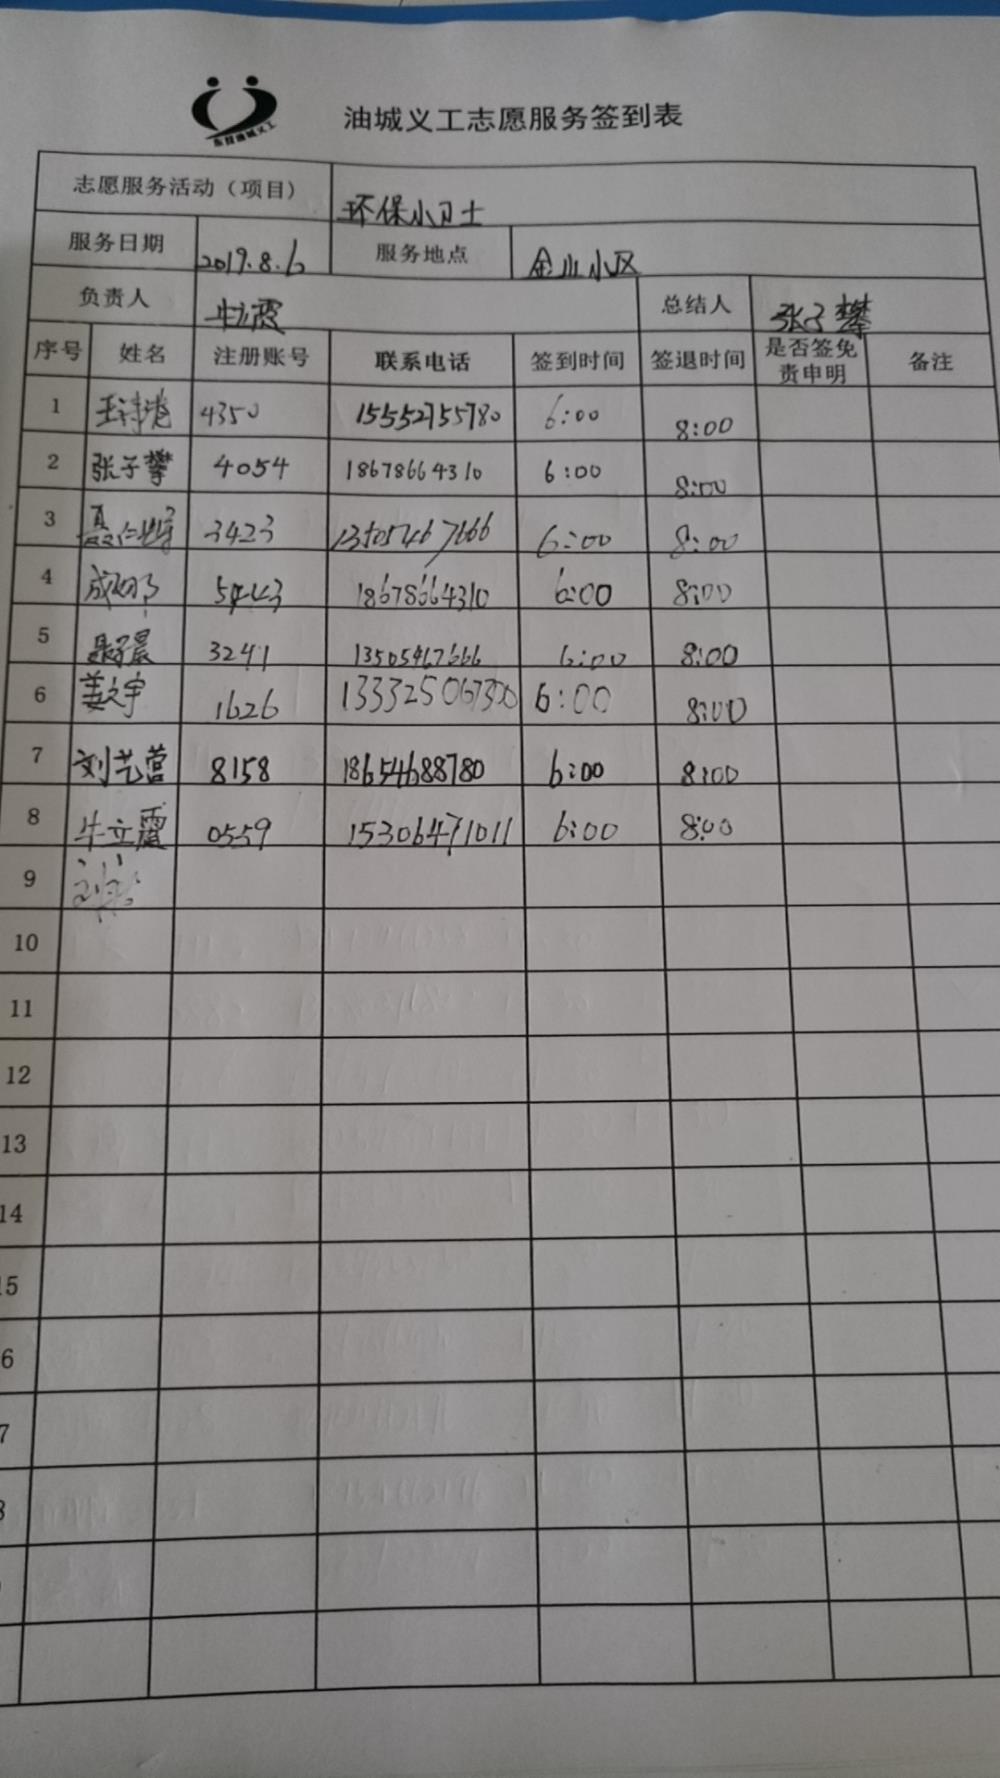 东营油城义工
油城义工志愿服务签到表
志愿服务活动（项目） 环保小卫士
服务日期 2019.8.6 服务地点 金山小区
负责人 牛立霞 总结人 张子攀
序号 姓名 注册账号 联系电话 签到时间 签退时间 是否签免责申明 备注
1 4350 15552755780 6:00 8:00
2 张子攀 4054 18678664310 6:00 8:00
3 3423 13505467666 6:00 8:00
4 5443 18678664310 6:00 8:00
5 3241 13505467666 6:00 8:00
6 姜文宇 1626 6:00 8:00
7 刘艺营 8158 18654688780 6:00 8:00
8 牛立霞 0559 15306471011 6:00 8:00
9
10
11
12
13
14
15
6
7
8